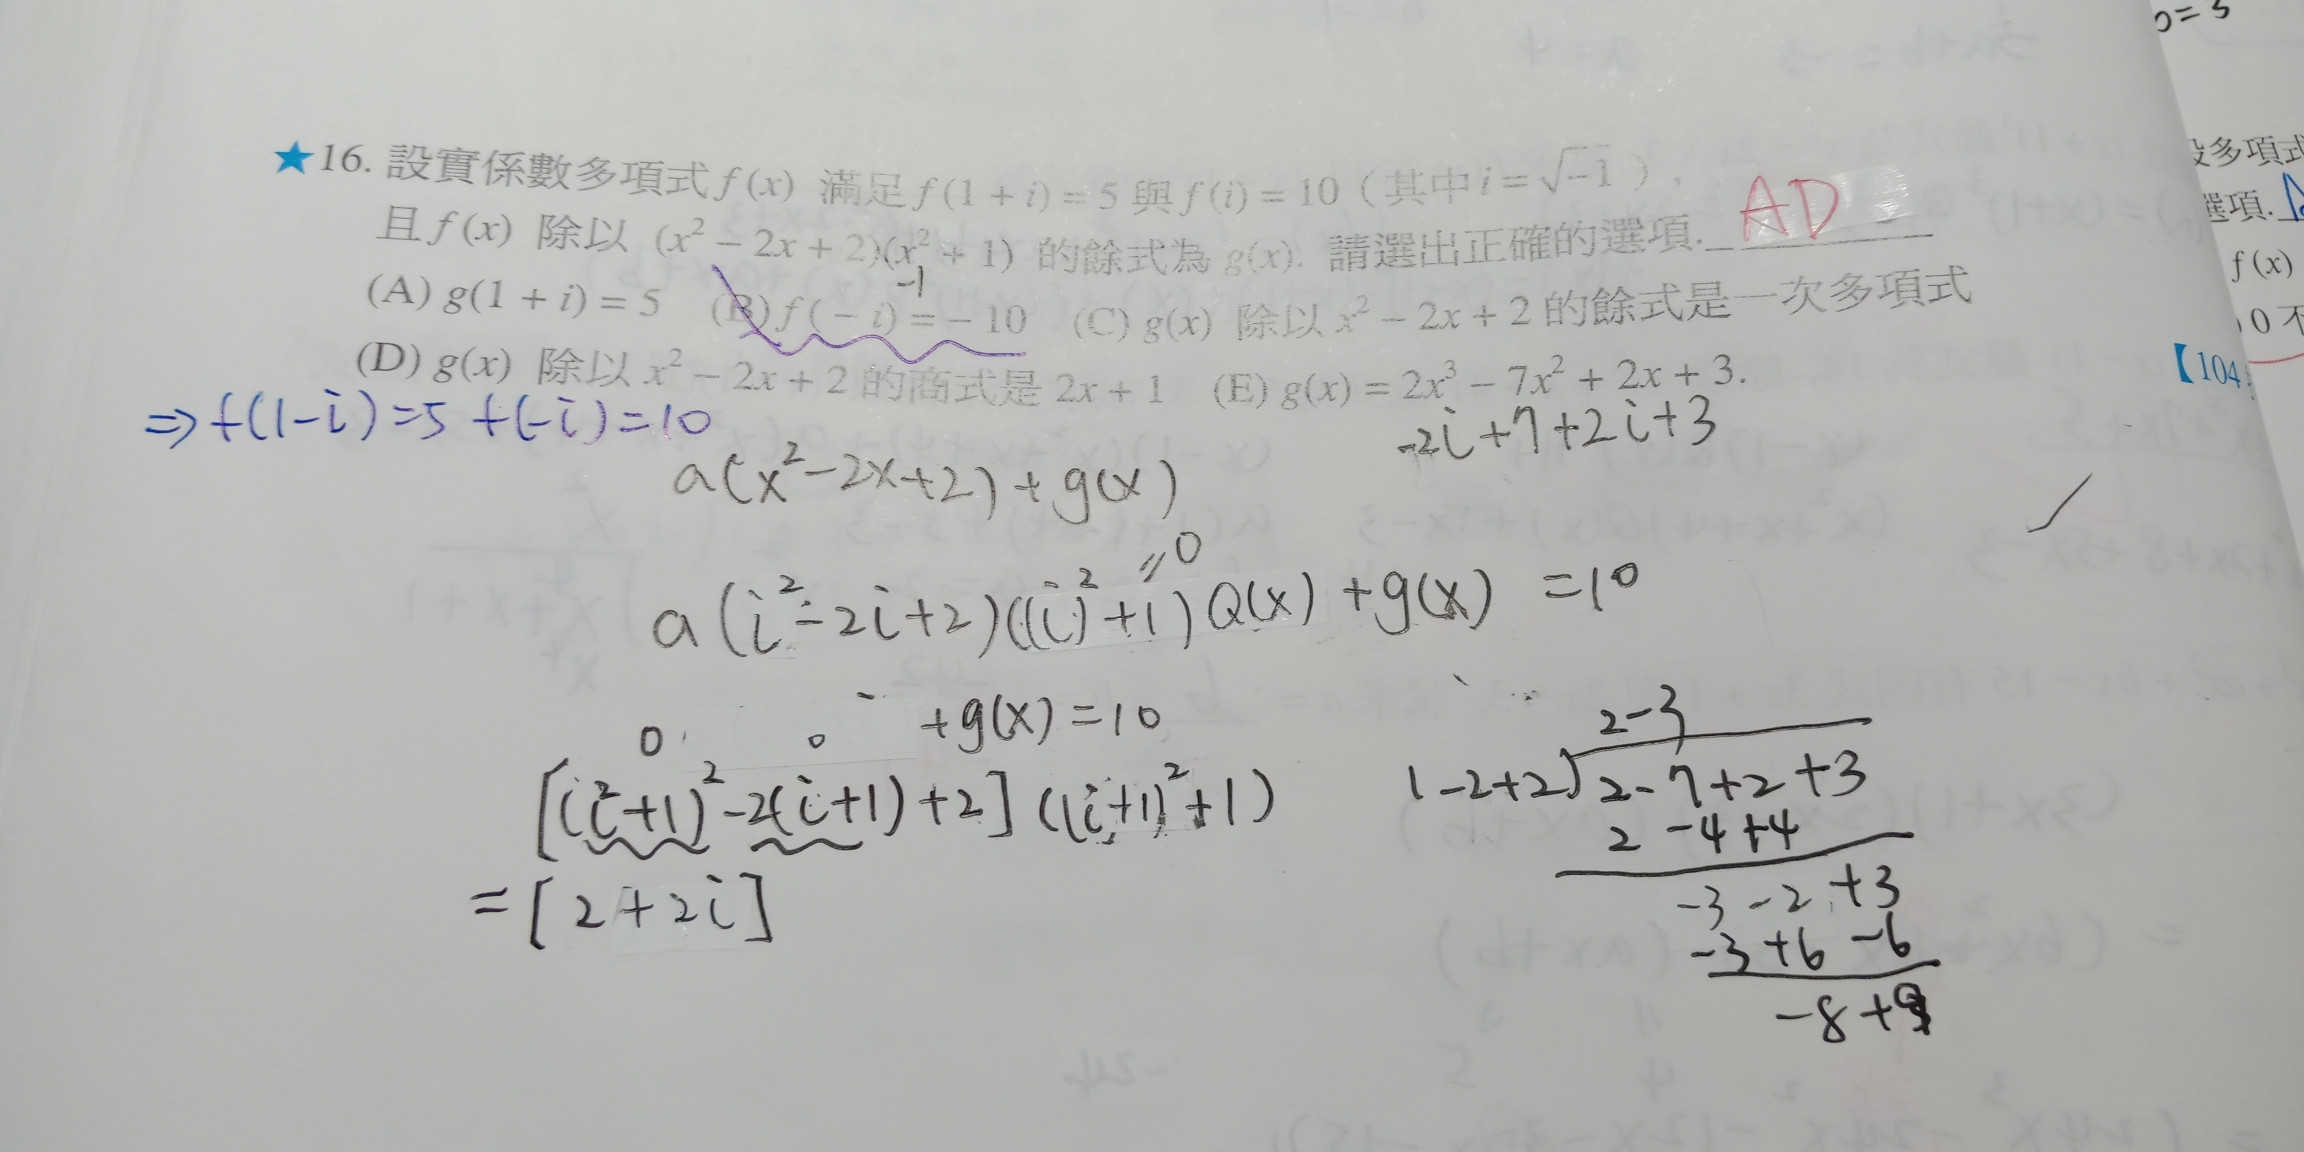 ★16. 設實係數多項式 f(x) 滿足 f(1+i)=5 與 f(i)=10 (其中 i=√-1),
且 f(x) 除以 (x²-2x+2)(x²+1) 的餘式為 g(x). 請選出正確的選項. AD
-1
(A) g(1+i)=5 (B) f(-i)=-10 (C) g(x) 除以 x²-2x+2 的餘式是一次多項式
(D) g(x) 除以 x²-2x+2 的商式是 2x+1 (E) g(x)=2x³-7x²+2x+3.
⇒ f(1-i)=5 f(-i)=10
-2i+7+2i+3
a(x²-2x+2)+g(x)
=0
a(i²-2i+2)((i)²+1)Q(x)+g(x) =10
+g(x)=10
0 0
[(i²+1)²-2(i+1)+2]((i+1)²+1)
=[2+2i]
2-3
1-2+2)2-7+2+3
2-4+4
-3-2+3
-3+6-6
-8+9
b=5
設多項式
選項.
f(x)
0 不
【104